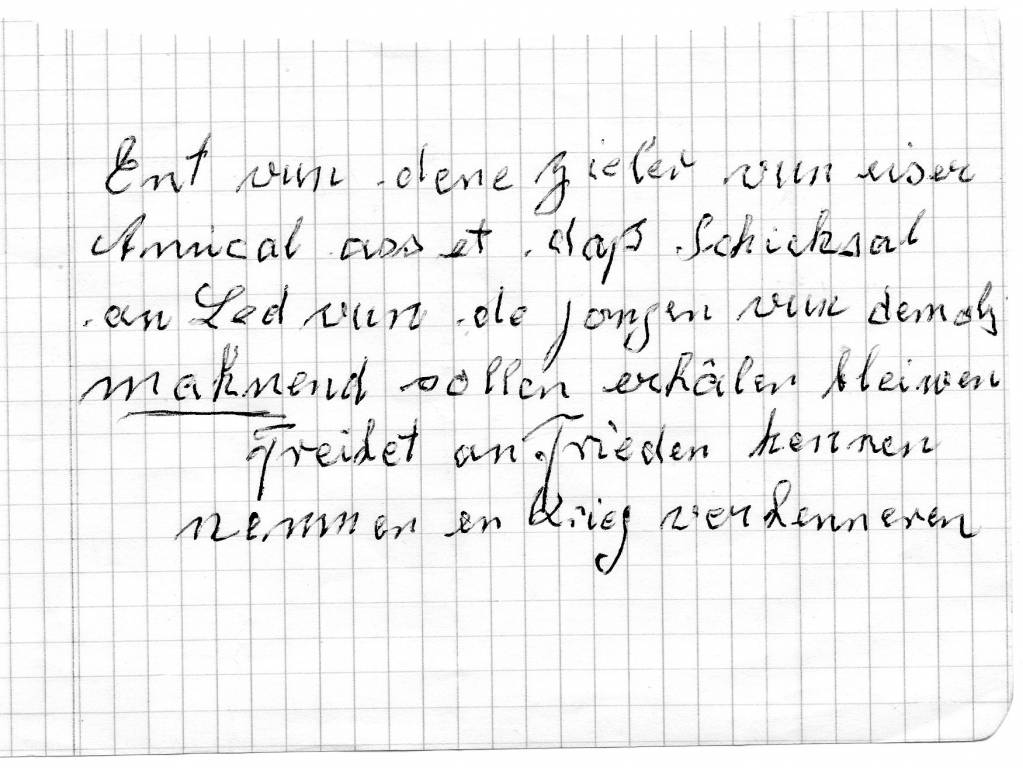 Ent vun dene Zieler vun eiser
Amical ass et daß Schicksal
an Led vun de jongen vun demols
mahnend sollen erhâlen bleiwen
Freihet an Frieden kennen
nemmen en Krieg verhenneren